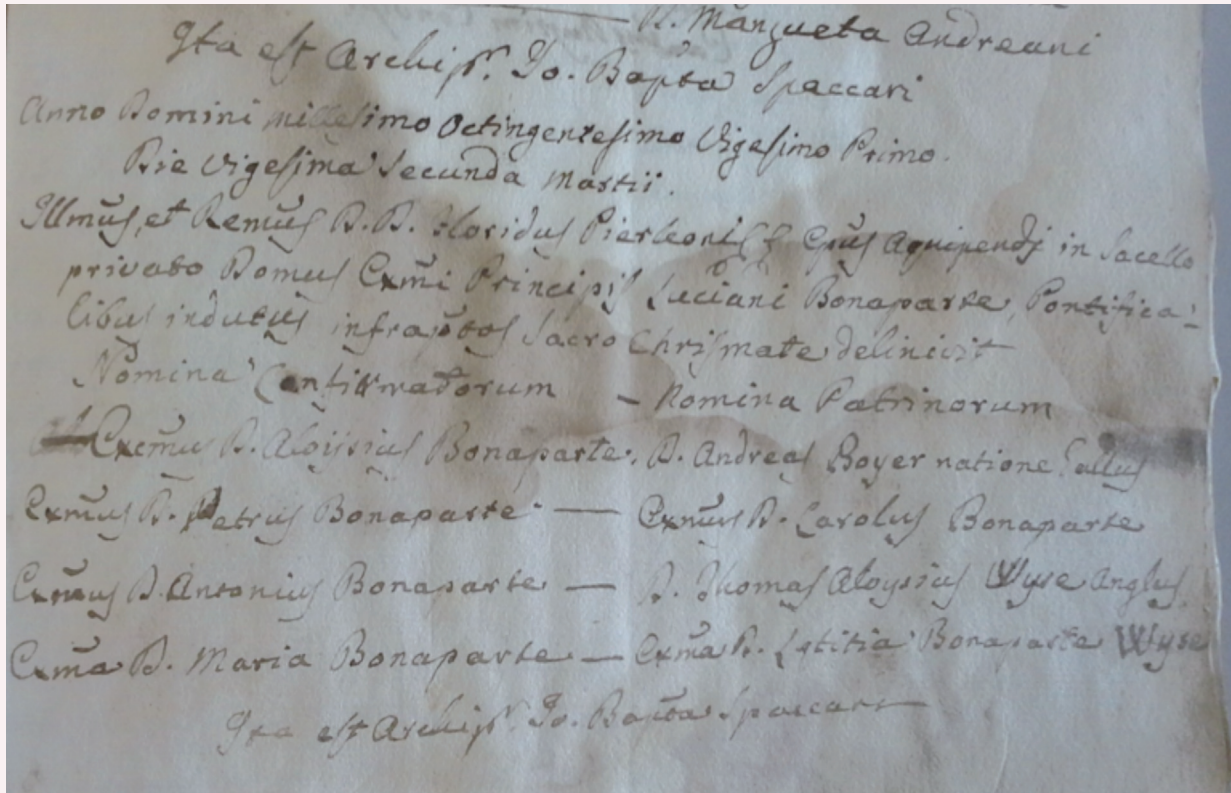 D. Manzueta Andreani
Ita est Archipr. Jo. Bapta Spaccari
Anno Domini millesimo Octingentesimo Vigesimo Primo.
Die Vigesima Secunda Martii.
Illmus, et Remus D. D. Floridus Pierleoni Epus Aquipendj in Sacello
privato Domus Exmi Principis Luciani Bonaparte, Pontifica:
libus indutus infraptos Sacro Chrismate delinivit
Nomina Confirmatorum – Nomina Patrinorum
Excmus D. Aloijsius Bonaparte. D. Andreas Boyer natione Gallus
Exmus D. Petrus Bonaparte — Exmus D. Carolus Bonaparte
Exmus D. Antonius Bonaparte — D. Thomas Aloysius Wyse Anglus
Exma D. Maria Bonaparte — Exma D. Lętitia Bonaparte Wyse
Ita est Archipr. Jo. Bapta Spaccari